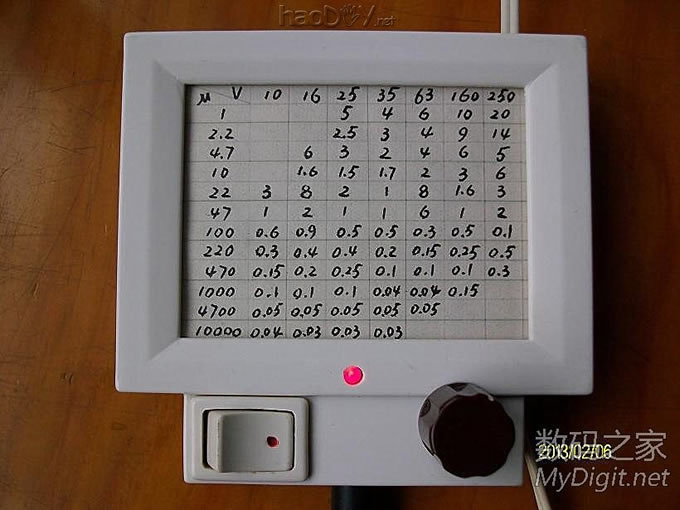 haoDIY.net
μ V 10 16 25 35 63 160 250
1 5 4 6 10 20
2.2 2.5 3 4 9 14
4.7 6 3 2 4 6 5
10 1.6 1.5 1.7 2 3 6
22 3 8 2 1 8 1.6 3
47 1 2 1 1 6 1 2
100 0.6 0.9 0.5 0.5 0.3 0.5 0.1
220 0.3 0.4 0.4 0.2 0.15 0.25 0.5
470 0.15 0.2 0.25 0.1 0.1 0.1 0.3
1000 0.1 0.1 0.1 0.04 0.04 0.15
4700 0.05 0.05 0.05 0.05 0.05
10000 0.04 0.03 0.03 0.03
数码之家
2013/02/06
MyDigit.net